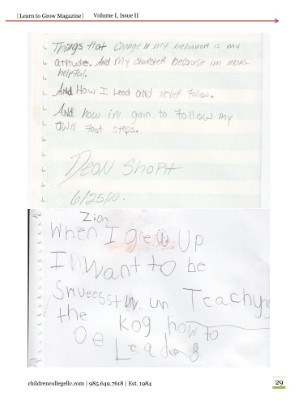 [Learn to Grow Magazine] Volume I, Issue II
Things that Change is my behavior is my
atitude. And my charater because im
helpful.
And How I Lead and never Follow.
And how im goin to follow my
own foot steps.
DEON SHORT
6/25/10
Zion
When I grew UP
I Want to be
in Teachyng
the how to
Leading
childrencollegellc.com | 985.649.7618 | Est. 1984 29